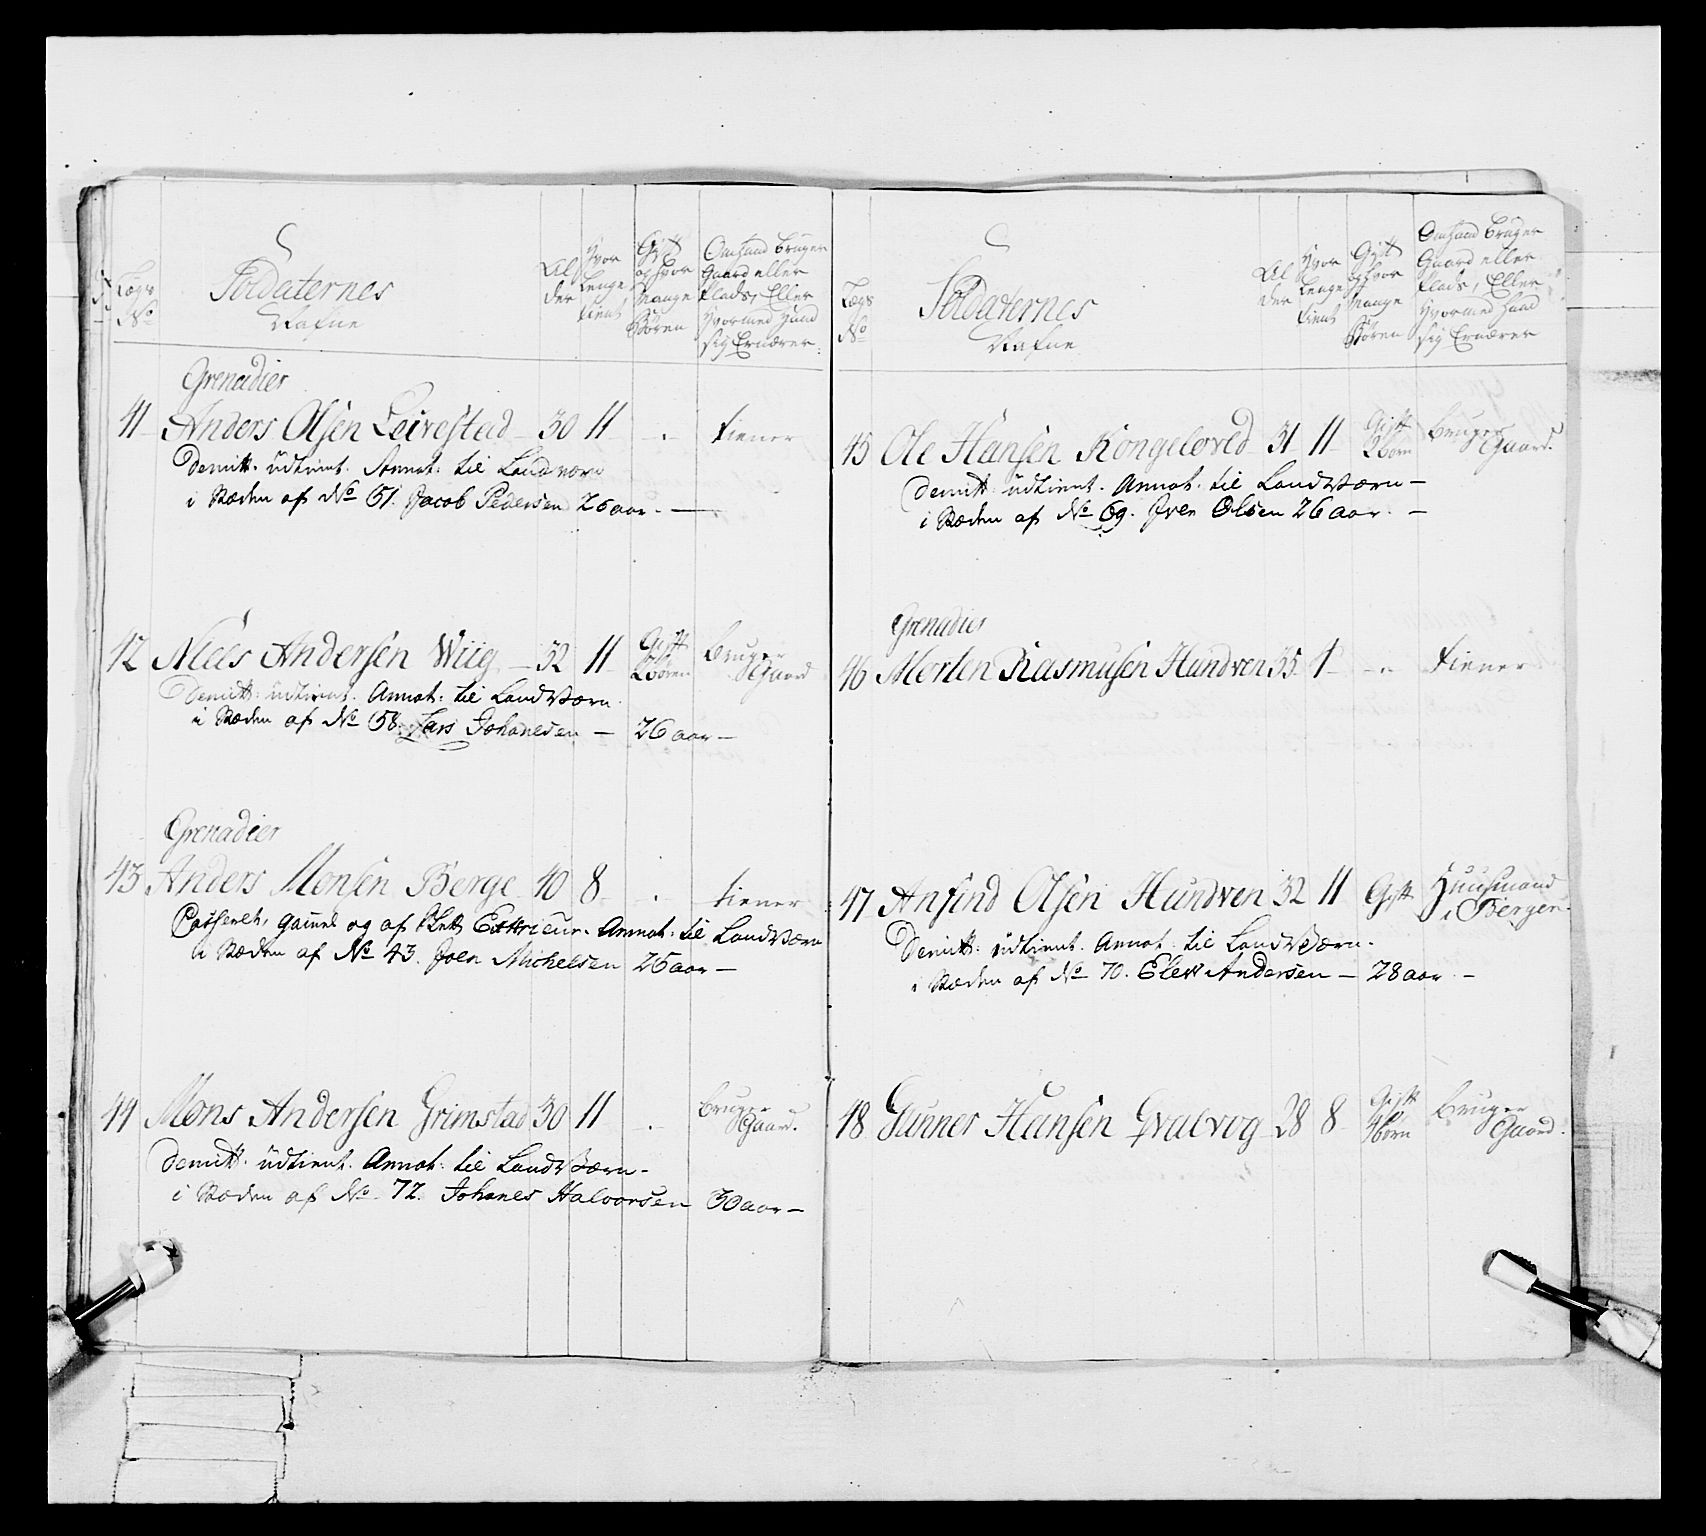 Lægs
No
Soldaternes
Nafne
Al
der
Hvor
Lenge
tient
Gift
og hvor
Mange
Børen
Om hand Bruger
Gaard eller
Plads, Eller
Hvormed Hand
sig Ernærer
Grenadier
41 Anders Olsen Leivestad 30 11 - tiener
Demitt. udtient. Annot. til Landværn
i Stæden af No 61. Jacob Pedersen 26 aar. —
42 Niels Andersen Wiig 32 11 Gift 2 børen Bruger Gaard
Demitt. udtient. Annot. til Landværn
i Stæden af No 68. Lars Johanesen — 26 aar —
Grenadier
43 Anders Monsen Berge 40 8 - tiener
Casseret, gamel og af slett Extrieur. Annot. til Landværn
i Stæden af No 43. Joen Michelsen 25 aar —
44 Mons Andersen Grimstad 30 11 - Bruger Gaard.
Demitt. udtient. Annot. til Landværn -
i Stæden af No 72. Johanes Halvorsen 30 aar —
Lægs
No
Soldaternes
Nafne
Al
der
Hvor
Lenge
tient
Gift
og hvor
Mange
Børen
Om hand Bruger
Gaard eller
Plads, Eller
Hvormed Hand
sig Ernærer
45 Ole Hansen Kongeløved 31 11 Gift 2 børn Bruger Gaard.
Demitt. udtient. Annot. til Landværn —
i Stæden af No 69. Iver Olsen 26 aar. —
Grenadier
46 Morten Rasmusen Hundven 35 1 - tiener
47 Anfind Olsen Hundven 32 11 Gift Huusmand i Bergen.
Demitt. udtient. Annot. til Landværn.
i Stæden af No 70. Elew Andersen — 28 aar —
48 Gunner Hansen Qvalvog 28 8 Gift 4 børn Bruger Gaard.